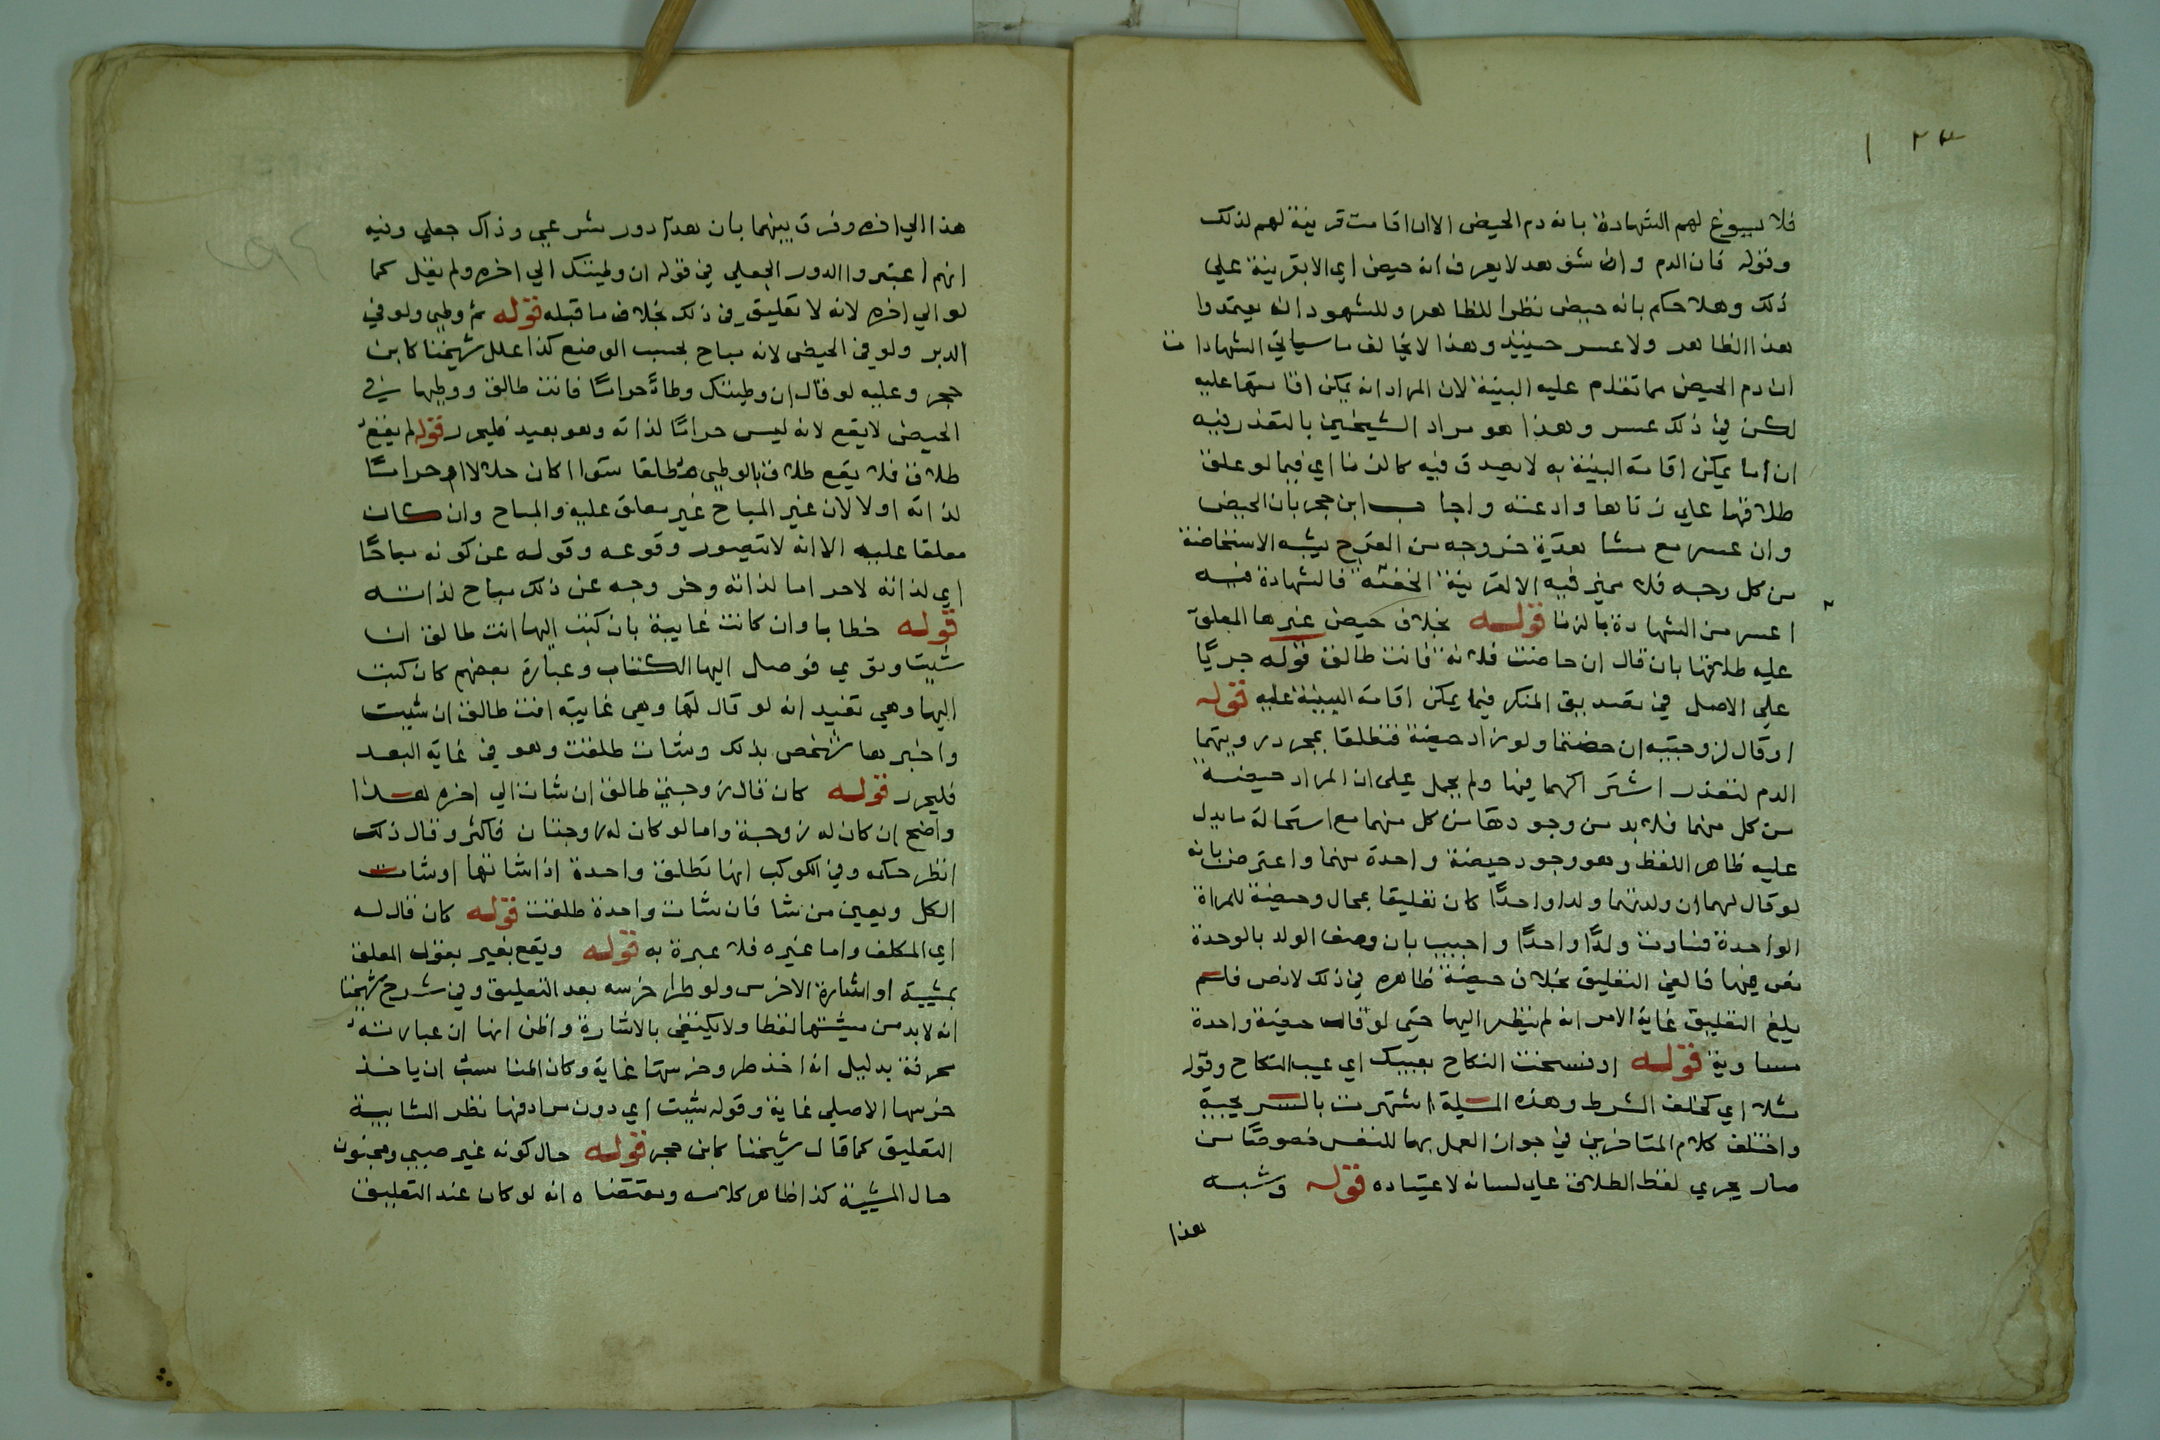 ١٢٣
فلا يسوغ لهم الشهادة بانه دم الحيض الا ان اقامت قرينة لهم لذلك
وقوله فان الدم وان شوهد لا يعرف انه حيض اي الا بقرينة علي
ذلك وهلا حكم بانه حيض نظرا للظاهر وللشهود انه يعتمدوا
هذا الظاهر ولا عسر حينيذ وهذا لا يخالف ما سياتي الشهادات
ان دم الحيض مما تقدم عليه البينة لان المراد انه يمكن اقامتها عليه
لكن في ذلك عسر وهذا هو مراد الشيخين بالتعذر فيه
ان اما يمكن اقامة البينة به لا يصدق فيه كالزنا اي فيما لو علق
طلاقها علي زناها وادعته واجاب ابن حجر بان الحيض
وان عسر مع مشاهدة خروجه من الفرج يشبه الاستحاضة
من كل وجه فلا مميز فيه الا القرينة الخفية فالشهادة فيه
اعسر من الشهادة بالزنا قوله بخلاف حيض غيرها المعلق
عليه طلاقها بان قال ان حاضت فلانة فانت طالق قوله جريا
علي الاصل في تصديق المنكر فيما يمكن اقامة البينة عليه قوله
او قال لزوجتيه ان حضتما ولو زاد حيضة فتطلقا بمجرد رويتهما
الدم لتعذر اشتراكهما فيها ولم يحمل علي ان المراد حيضة
من كل منهما فلا بد من وجودها من كل منهما مع استحالة ما يدل
عليه ظاهر اللفظ وهو وجود حيضة واحدة منهما واعترض بانه
لو قال لهما ان ولدتما ولدا واحدا كان تعليقا بمحال وحيضة للمراة
الواحدة فساوت ولدًا واحدًا واجيب بان وصف الولد بالوحدة
نص فيها فالغي التعليق بخلاف حيضة ظاهره في ذلك لا نص فاسم
يلغ التعليق غاية الامر انه لم ينظر اليها حتي لو قال حيضة واحدة
مساوية قوله او فسخت النكاح بعيبك اي عيب النكاح وقوله
مثلا اي كخلف الشرط وهذه المسيلة اشتهرت بالسريجية
واختلف كلام المتاخرين في جواز العمل بها للنفس خصوصًا من
صار يجري لفظ الطلاق علي لسانه لاعتياده قوله وشبه
هذا
هذا الي اخره وفرق بينهما بان هذا دور شرعي وذاك جعلي وفيه
انهم اعتبروا الدور الجعلي في قوله ان وطيتك الي اخره ولم يقل كما
لو الي اخره لانه لا تعليق في ذلك بخلاف ما قبله قوله ثم وطي ولو في
الدبر ولو في الحيض لانه مباح بحسب الوضع كذا علل شيخنا كابن
حجر وعليه لو قال ان وطيتك وطاً حراما فانت طالق ووطيها في
الحيض لا يقع لانه ليس حرامًا لذاته وهو بعيد فليحرر قوله لم يقع
طلاق فلا يقع طلاق بالوطي مطلقا سوا اكان حلالا ام حرامًا
لذاته اولا لان غير المباح غير معلق عليه والمباح وان كان
معلقا عليه الا انه لا يتصور وقوعه وقوله عن كونه مباحًا
اي لذاته لا حراما لذاته وخروجه عن ذلك مباح لذاته
قوله خطابا وان كانت غايبة بان كتب اليها انت طالق ان
شيت ونوي فوصل اليها الكتاب وعبارة بعضهم كان كتب
اليها وهي تفيد انه لو قال لها وهي غايبة انت طالق ان شيت
واخبرها شخص بذلك وشات طلقت وهو في غاية البعد
فليحرر قوله كان قال زوجتي طالق ان شات الي اخره هذا
واضح ان كان له زوجة واما لو كان له زوجتان فاكثر وقال ذلك
انظر حكمه وفي الكوكب انها تطلق واحدة اذا شاتها او شات
الكل ويعين من شا فان شات واحدة طلقت قوله كان قال له
اي المكلف واما غيره فلا عبرة به قوله ويقع بغير بقول المعلق
بمشيية او اشارة الاخرس ولو طرا خرسه بعد التعليق وفي شرح شيخنا
انه لا بد من مشيتها لفظا ولا يكتفي بالاشارة واظن انها ان عبارته
محرفة بدليل انه اخذ طرو خرسها غاية وكان المناسب ان ياخذ
خرسها الاصلي غاية وقوله شيت اي دون مرادفها نظر الشايبة
التعليق كما قال شيخنا كابن حجر قوله حال كونه غير صبي ومجنون
حال المشيية كذا ظاهر كلامه ومقتضاه انه لو كان عند التعليق